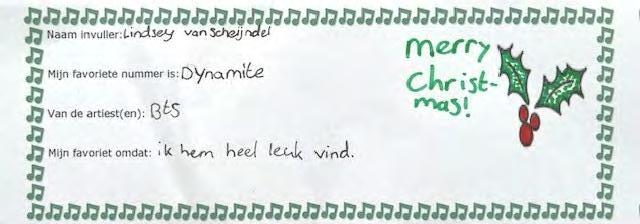 Naam invuller: Lindsey van Scheijndel
Mijn favoriete nummer is: Dynamite
Van de artiest(en): Bts
Mijn favoriet omdat: ik hem heel leuk vind.
merry
Christ-
mas!